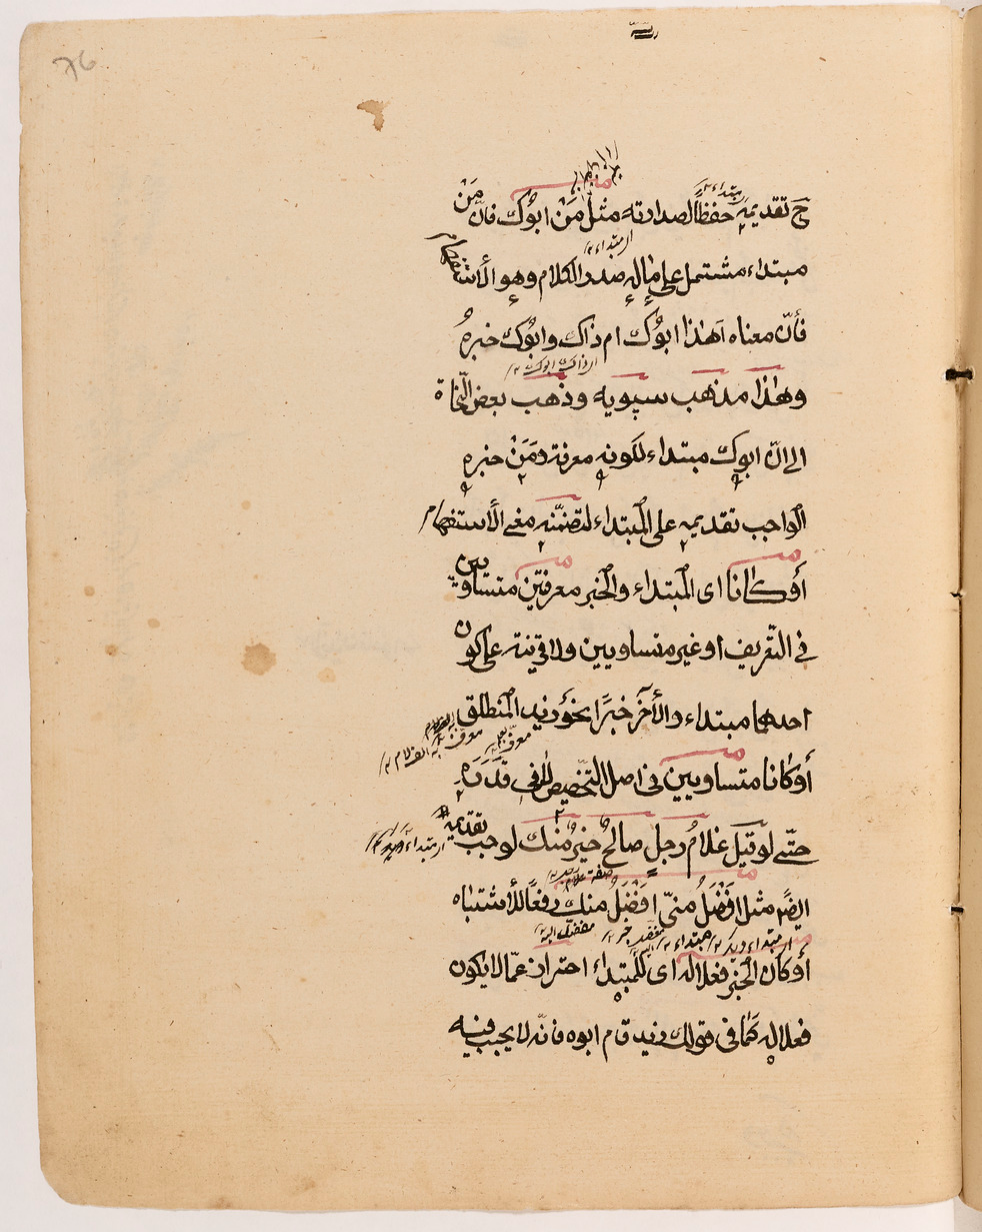 ح تقديمه حفظاً لصدارته مثل مَنْ ابوُك فانّ مَنْ
مبتداء مشتمل على ماله صدر الكلام وهو الأستفهام
فأنّ معناه اَهٰذا ابوُك ام ذاك وابوُك خبرهُ
وهٰذا مذهب سيبويه وذهب بعض النّحاة
الى انّ ابوك مبتداء لكونه معرفة ومَنْ خبره
الواجب تقديمه على المبتداء لتضمّنه معنى الأستفهام
أوكانا اى المبتداء والخبر معرفتين متساويين
فى التّعريف او غير متساويين ولا قرينة على كون
احدهما مبتداء والأخر خبرًا نحو زيد المنطلق
أوكانا متساويين فى اصل التّخصيص لا فى قدره
حتّى لو قيل غلامُ رجلٍ صالحٌ خيرٌ منك لوجب تقديمه
ايضًا مثل افضَلُ منىّ افضَلُ منك رفعًا للأشتباه
أوكان الخبر فعلا له اى للمبتداء احتراز عمّا لا يكون
فعلا له كما فى قولك زيد قام ابوه فانّه لا يجب فيه
76